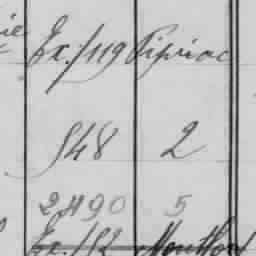 ie Ex./119 Pipriac
548 2
2490 5
Ex./52 Montfort